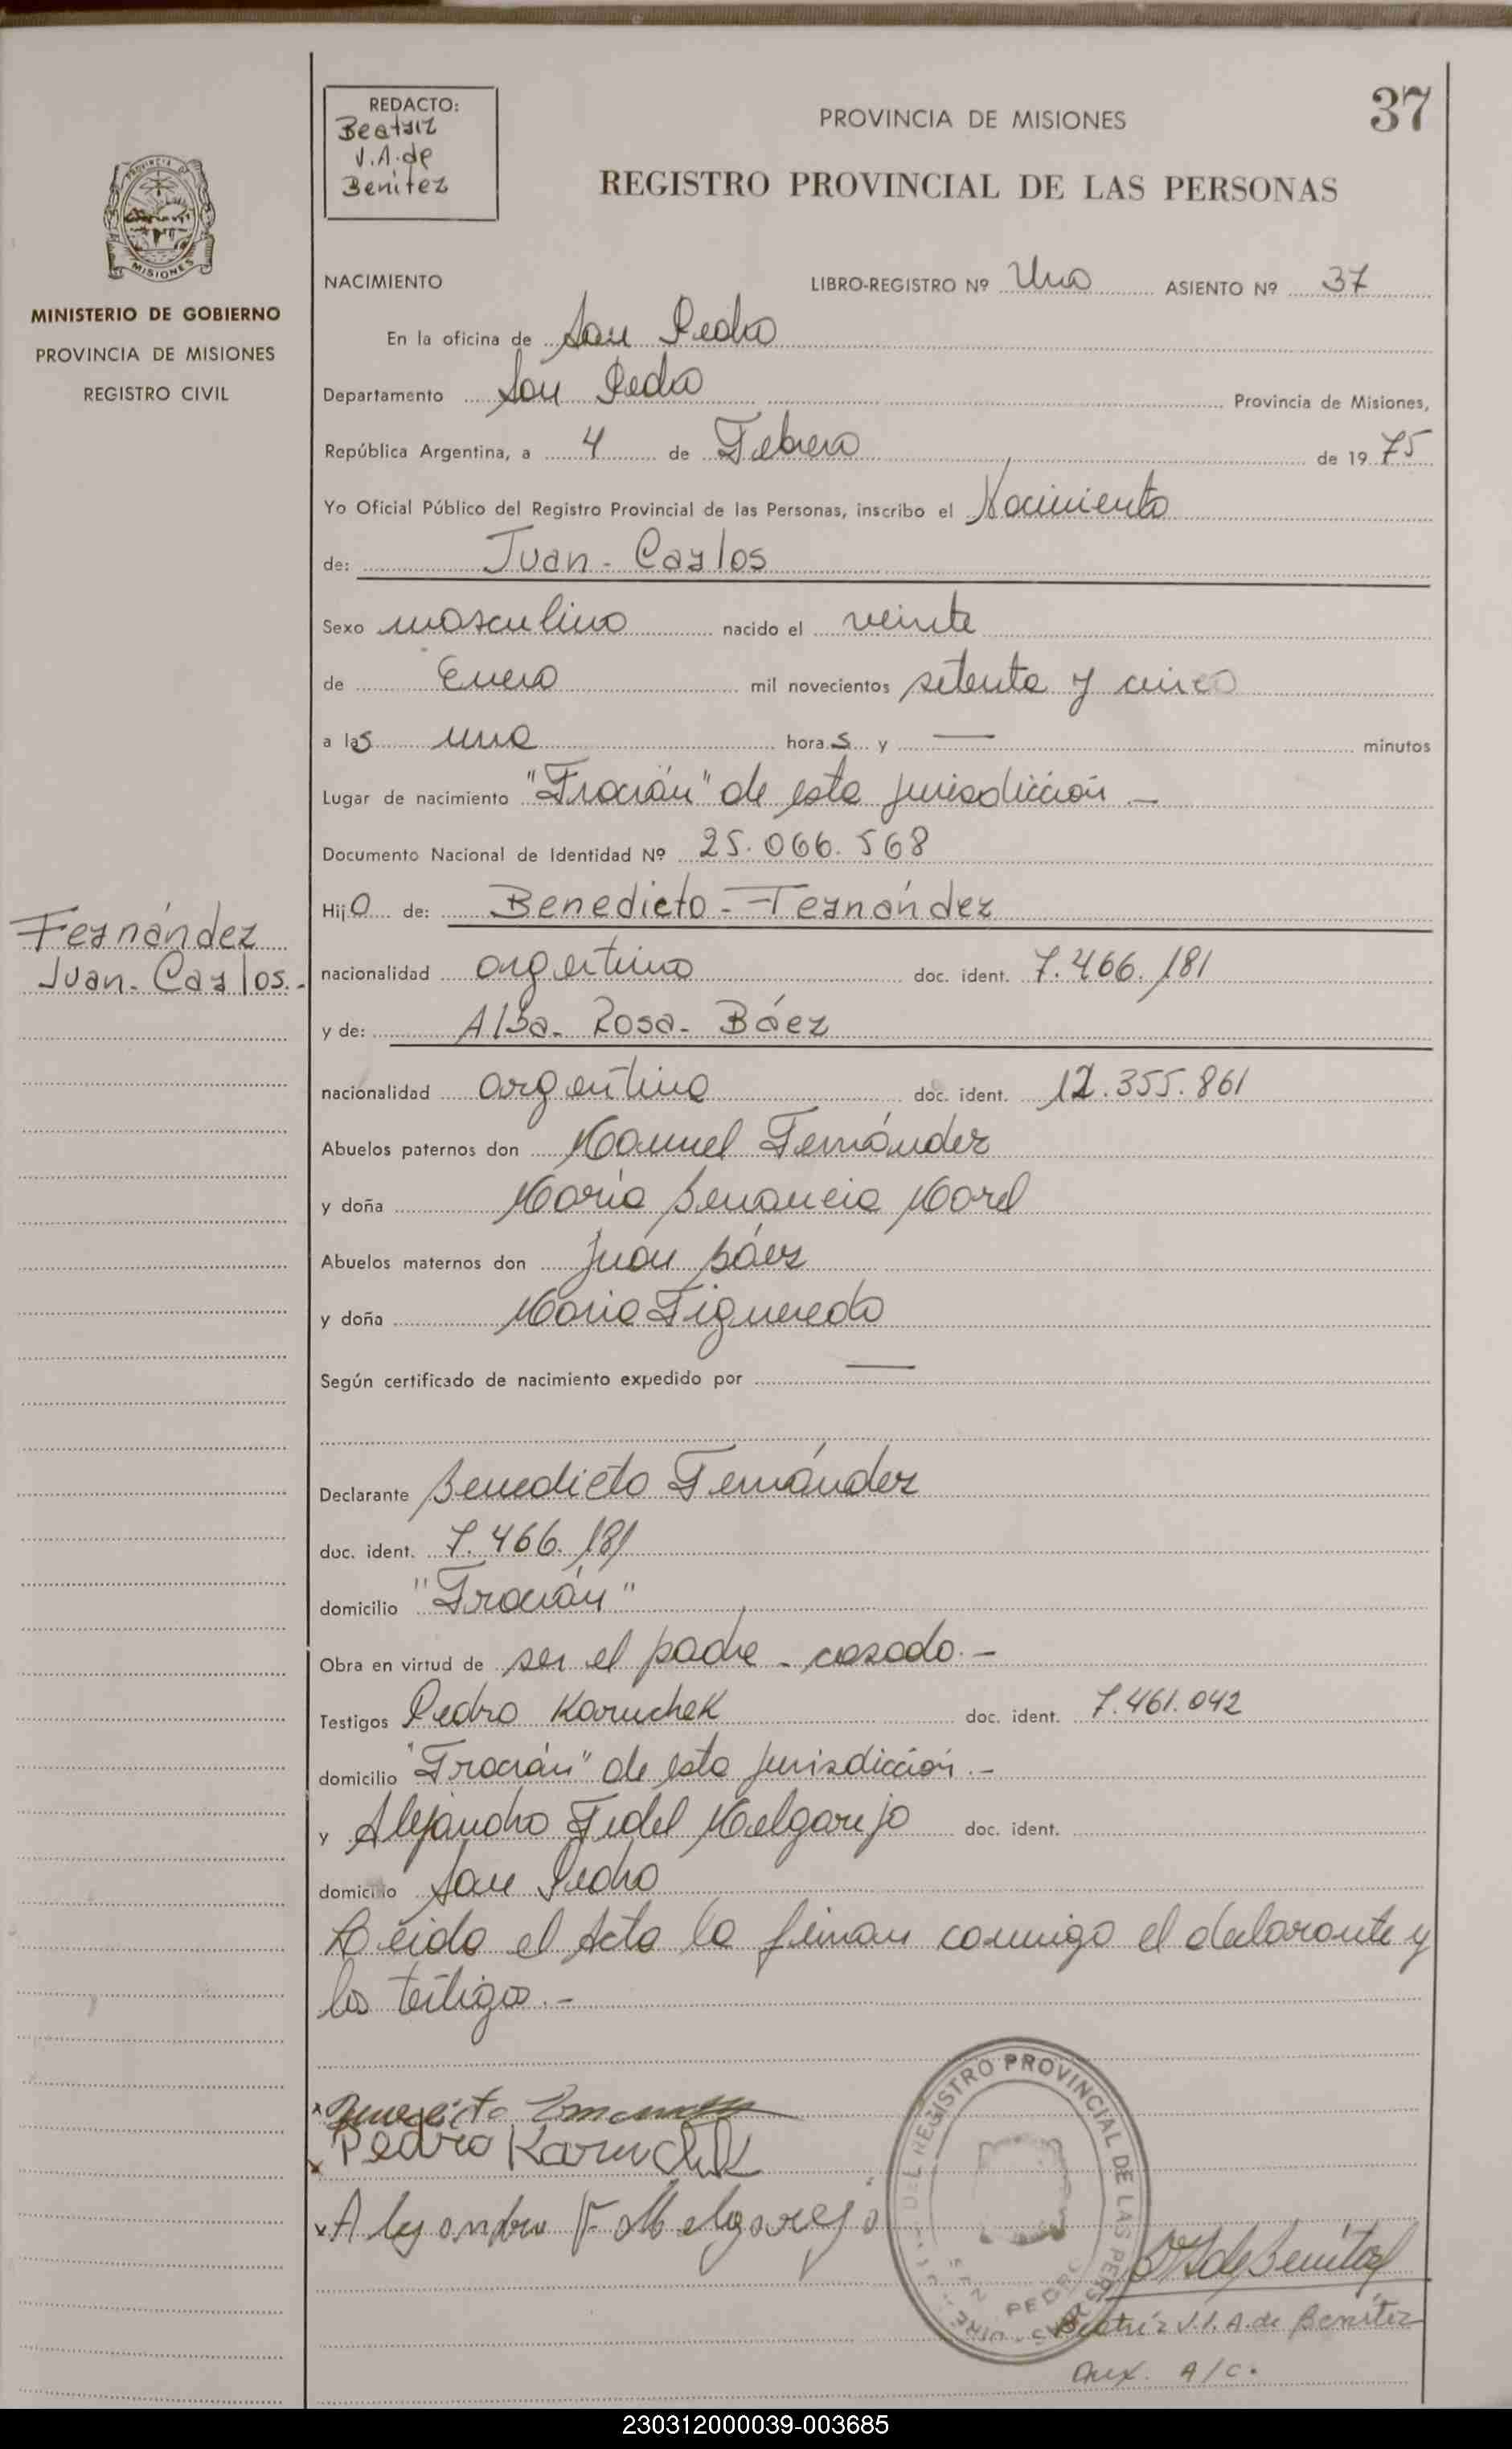 REDACTO:
Beatriz
V.A. de
Benitez
PROVINCIA DE MISIONES
37
REGISTRO PROVINCIAL DE LAS PERSONAS
MISIONES
MINISTERIO DE GOBIERNO
PROVINCIA DE MISIONES
REGISTRO CIVIL
NACIMIENTO LIBRO-REGISTRO Nº Uno ASIENTO Nº 37
En la oficina de San Pedro
Departamento San Pedro Provincia de Misiones,
República Argentina, a 4 de Febrero de 1975
Yo Oficial Público del Registro Provincial de las Personas, inscribo el Nacimiento
de: Juan - Carlos
Sexo masculino nacido el veinte
de Enero mil novecientos setenta y cinco
a las una horas y — minutos
Lugar de nacimiento "Fracrán" de esta jurisdicción -
Documento Nacional de Identidad Nº 25.066.568
Hijo de: Benedicto - Fernández
Fernández
Juan - Carlos.-
nacionalidad argentino doc. ident. 7.466.181
y de: Alba - Rosa - Báez
nacionalidad argentina doc. ident. 12.355.861
Abuelos paternos don Manuel Fernández
y doña María Benancia Morel
Abuelos maternos don Juán Báez
y doña María Figueredo
Según certificado de nacimiento expedido por —
Declarante Benedicto Fernández
doc. ident. 7.466.181
domicilio "Fracrán"
Obra en virtud de ser el padre - casado.-
Testigos Pedro Karuchek doc. ident. 7.461.042
domicilio "Fracrán" de esta jurisdicción.-
y Alejandro Fidel Melgarejo doc. ident.
domicilio San Pedro
Leida el Acta la firman conmigo el declarante y
los testigos.-
Pedro Karuchek
Alejandro F. Melgarejo
DEL REGISTRO PROVINCIAL DE LAS PERSONAS
SAN PEDRO
Beatriz V.I. A. de Benitez
Aux. A/C.
230312000039-003685